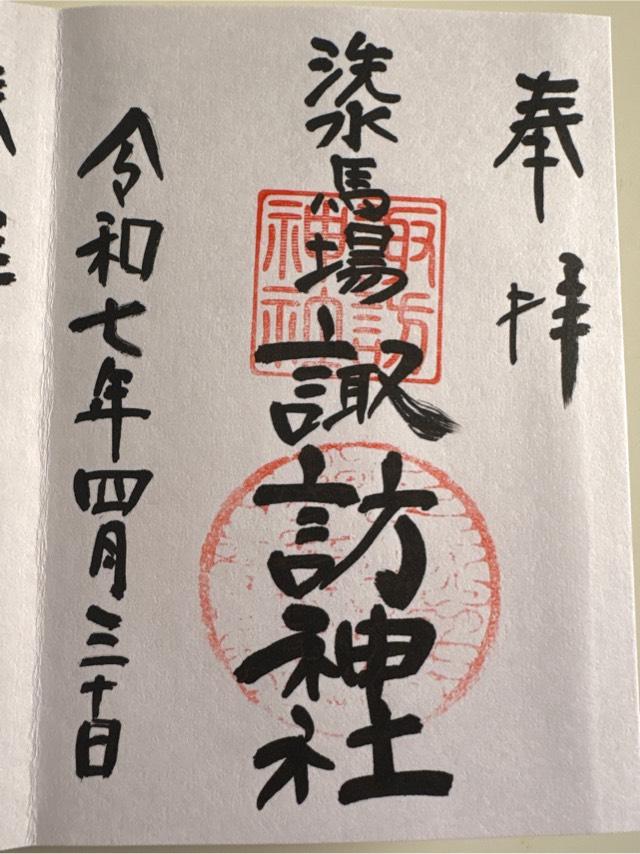 奉拝
洗水馬場
諏訪神社
令和七年四月三十日
諏訪神社